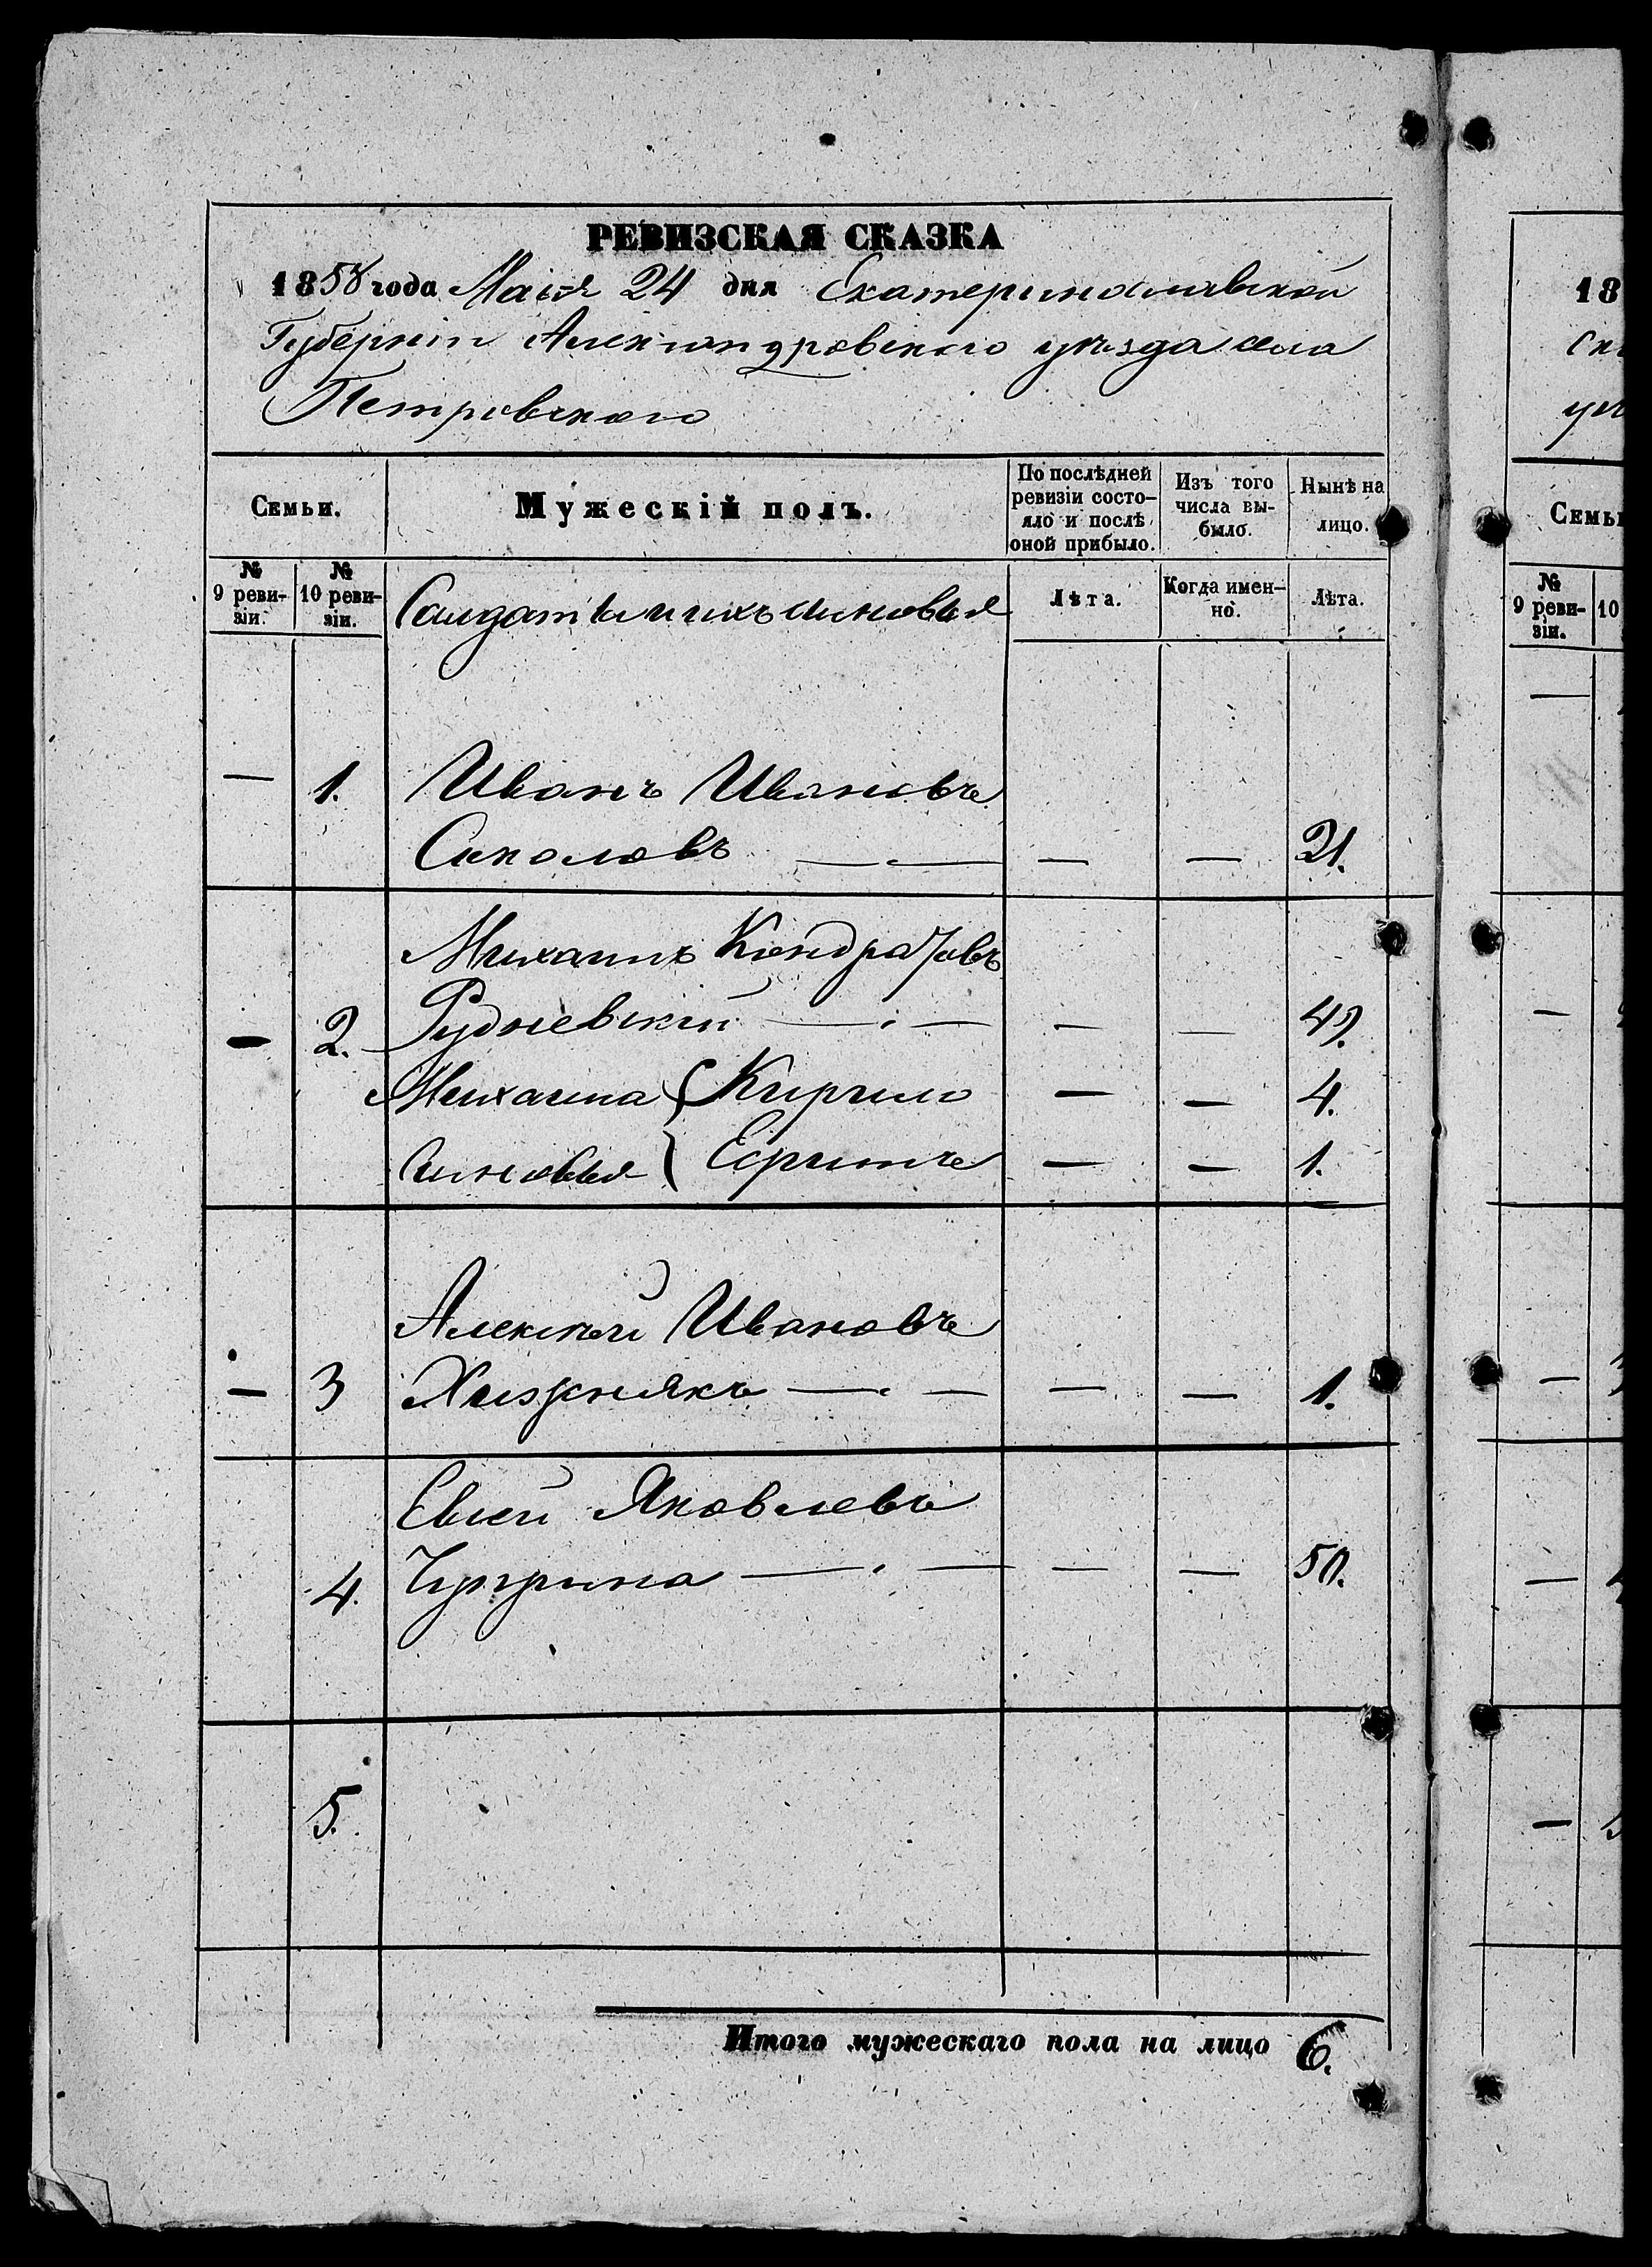 РЕВИЗСКАЯ СКАЗКА
1858 года Маія 24 дня Екатеринославской
Губерніи Александровскаго уѣзда села
Петровскаго
Семьи.
Мужескій полъ.
По послѣдней
ревизіи состо-
яло и послѣ
оной прибыло.
Изъ того
числа вы-
было.
Нынѣ на
лицо.
№
9 реви-
зіи.
№
10 реви-
зіи.
Солдатскихъ сыновья
Лѣта.
Когда имен-
но.
Лѣта.
— 1. Иванъ Ивановъ
Соколовъ — — — 21.
Михаилъ Кондратовъ
— 2. Рудневскій — — — 49.
Михаила { Кирило — — 4.
сыновья { Ефимъ — — 1.
Алексѣй Ивановъ
— 3 Хижнякъ — — — — 1.
Евсей Яковлевъ
4. Чуприна — — — — 50.
5.
Итого мужескаго пола на лицо 6.
18
Семьи
№
9 реви-
зіи.
10